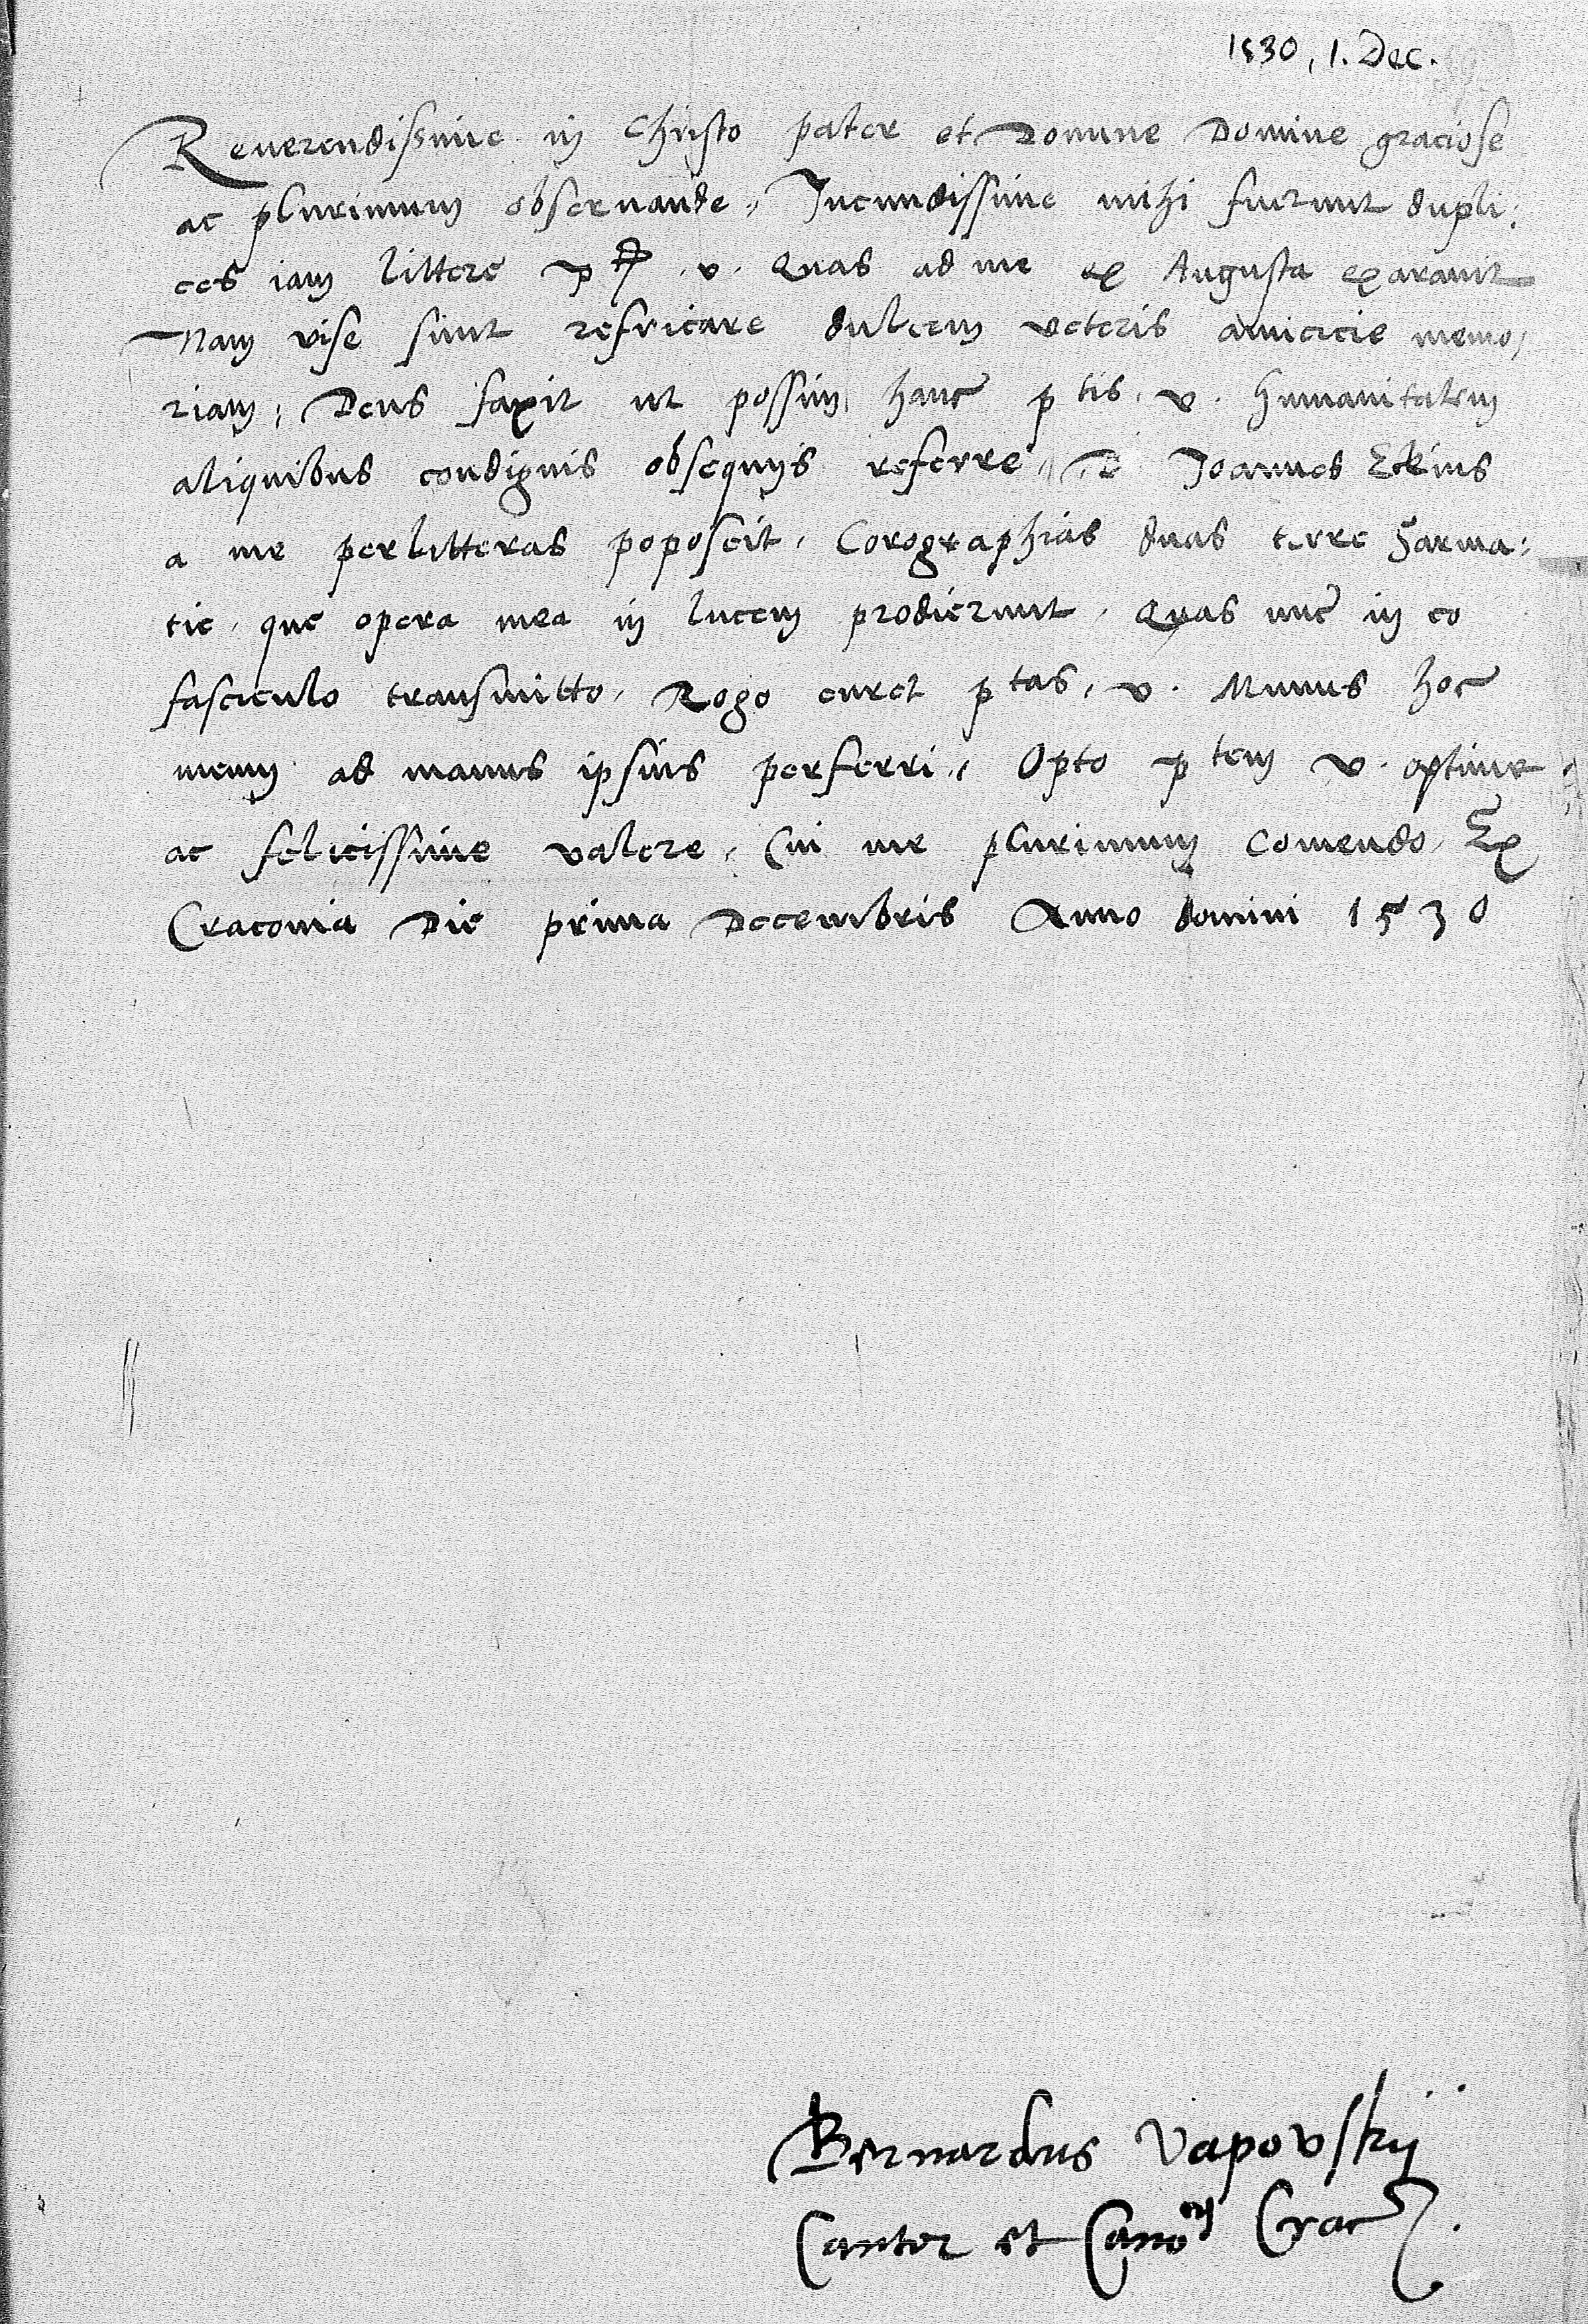 1530, 1. Dec.
Reuerendissime in Christo pater et Domine Domine graciose
ac plurimum obseruande. Iucundissime mihi fuerunt dupli:
ces iam littere p v. Quas ad me ex Augusta exarauit
Nam vise sunt refricare dulcem veteris amicicie memo,
riam; Deus faxit ut possim hanc p tis. v. humanitatem
aliquibus condignis obsequijs referre, D Joannes Eckius
a me per litteras poposcit, Corographias duas terre Sarma:
tie, que opera mea in lucem prodierunt, Quas nunc in eo
fasciculo transmitto, Rogo curet p tas, v. Munus hoc
meum ad manus ipsius perferri, Opto p tem v. optime
ac felicissime valere, Cui me plurimum Comendo, Ex
Cracouia Die prima Decembris Anno domini 1530
Bernardus Vapovskij
Cantor et Cano Crac.